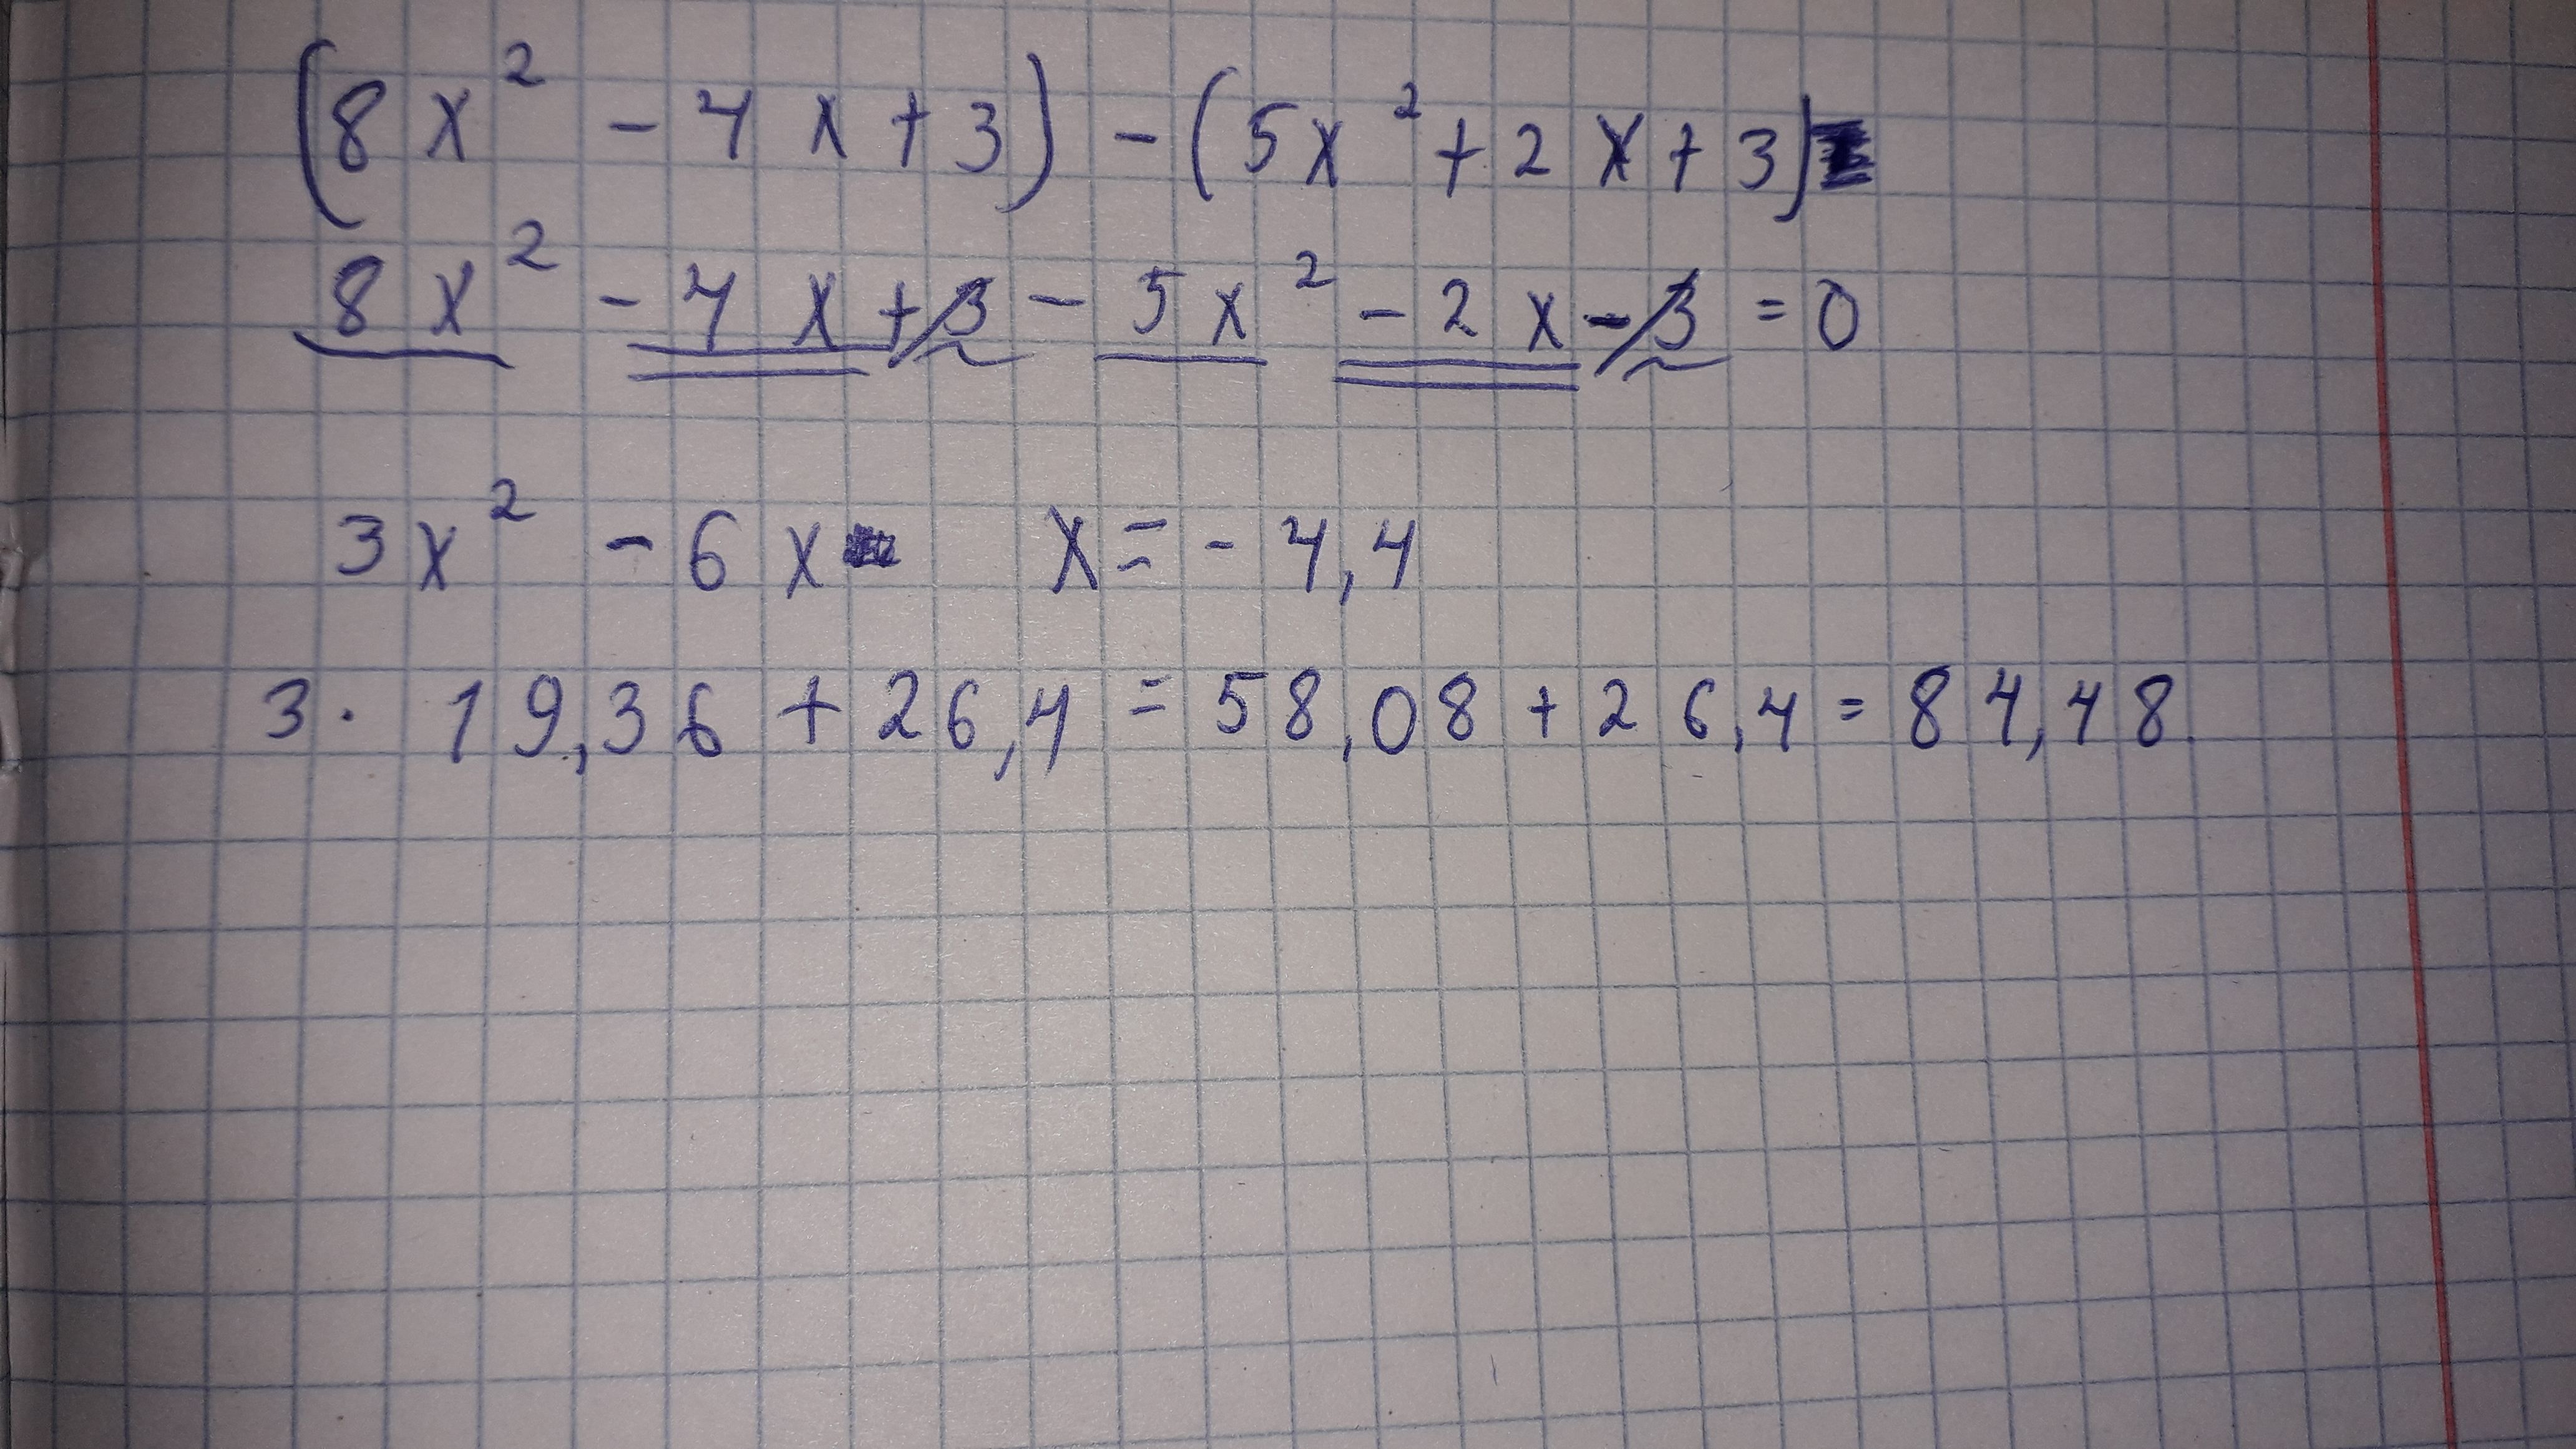 (8x² - 4x + 3) - (5x² + 2x + 3)
8x² - 4x + 3 - 5x² - 2x - 3 = 0
3x² - 6x x = - 4,4
3 · 19,36 + 26,4 = 58,08 + 26,4 = 84,48